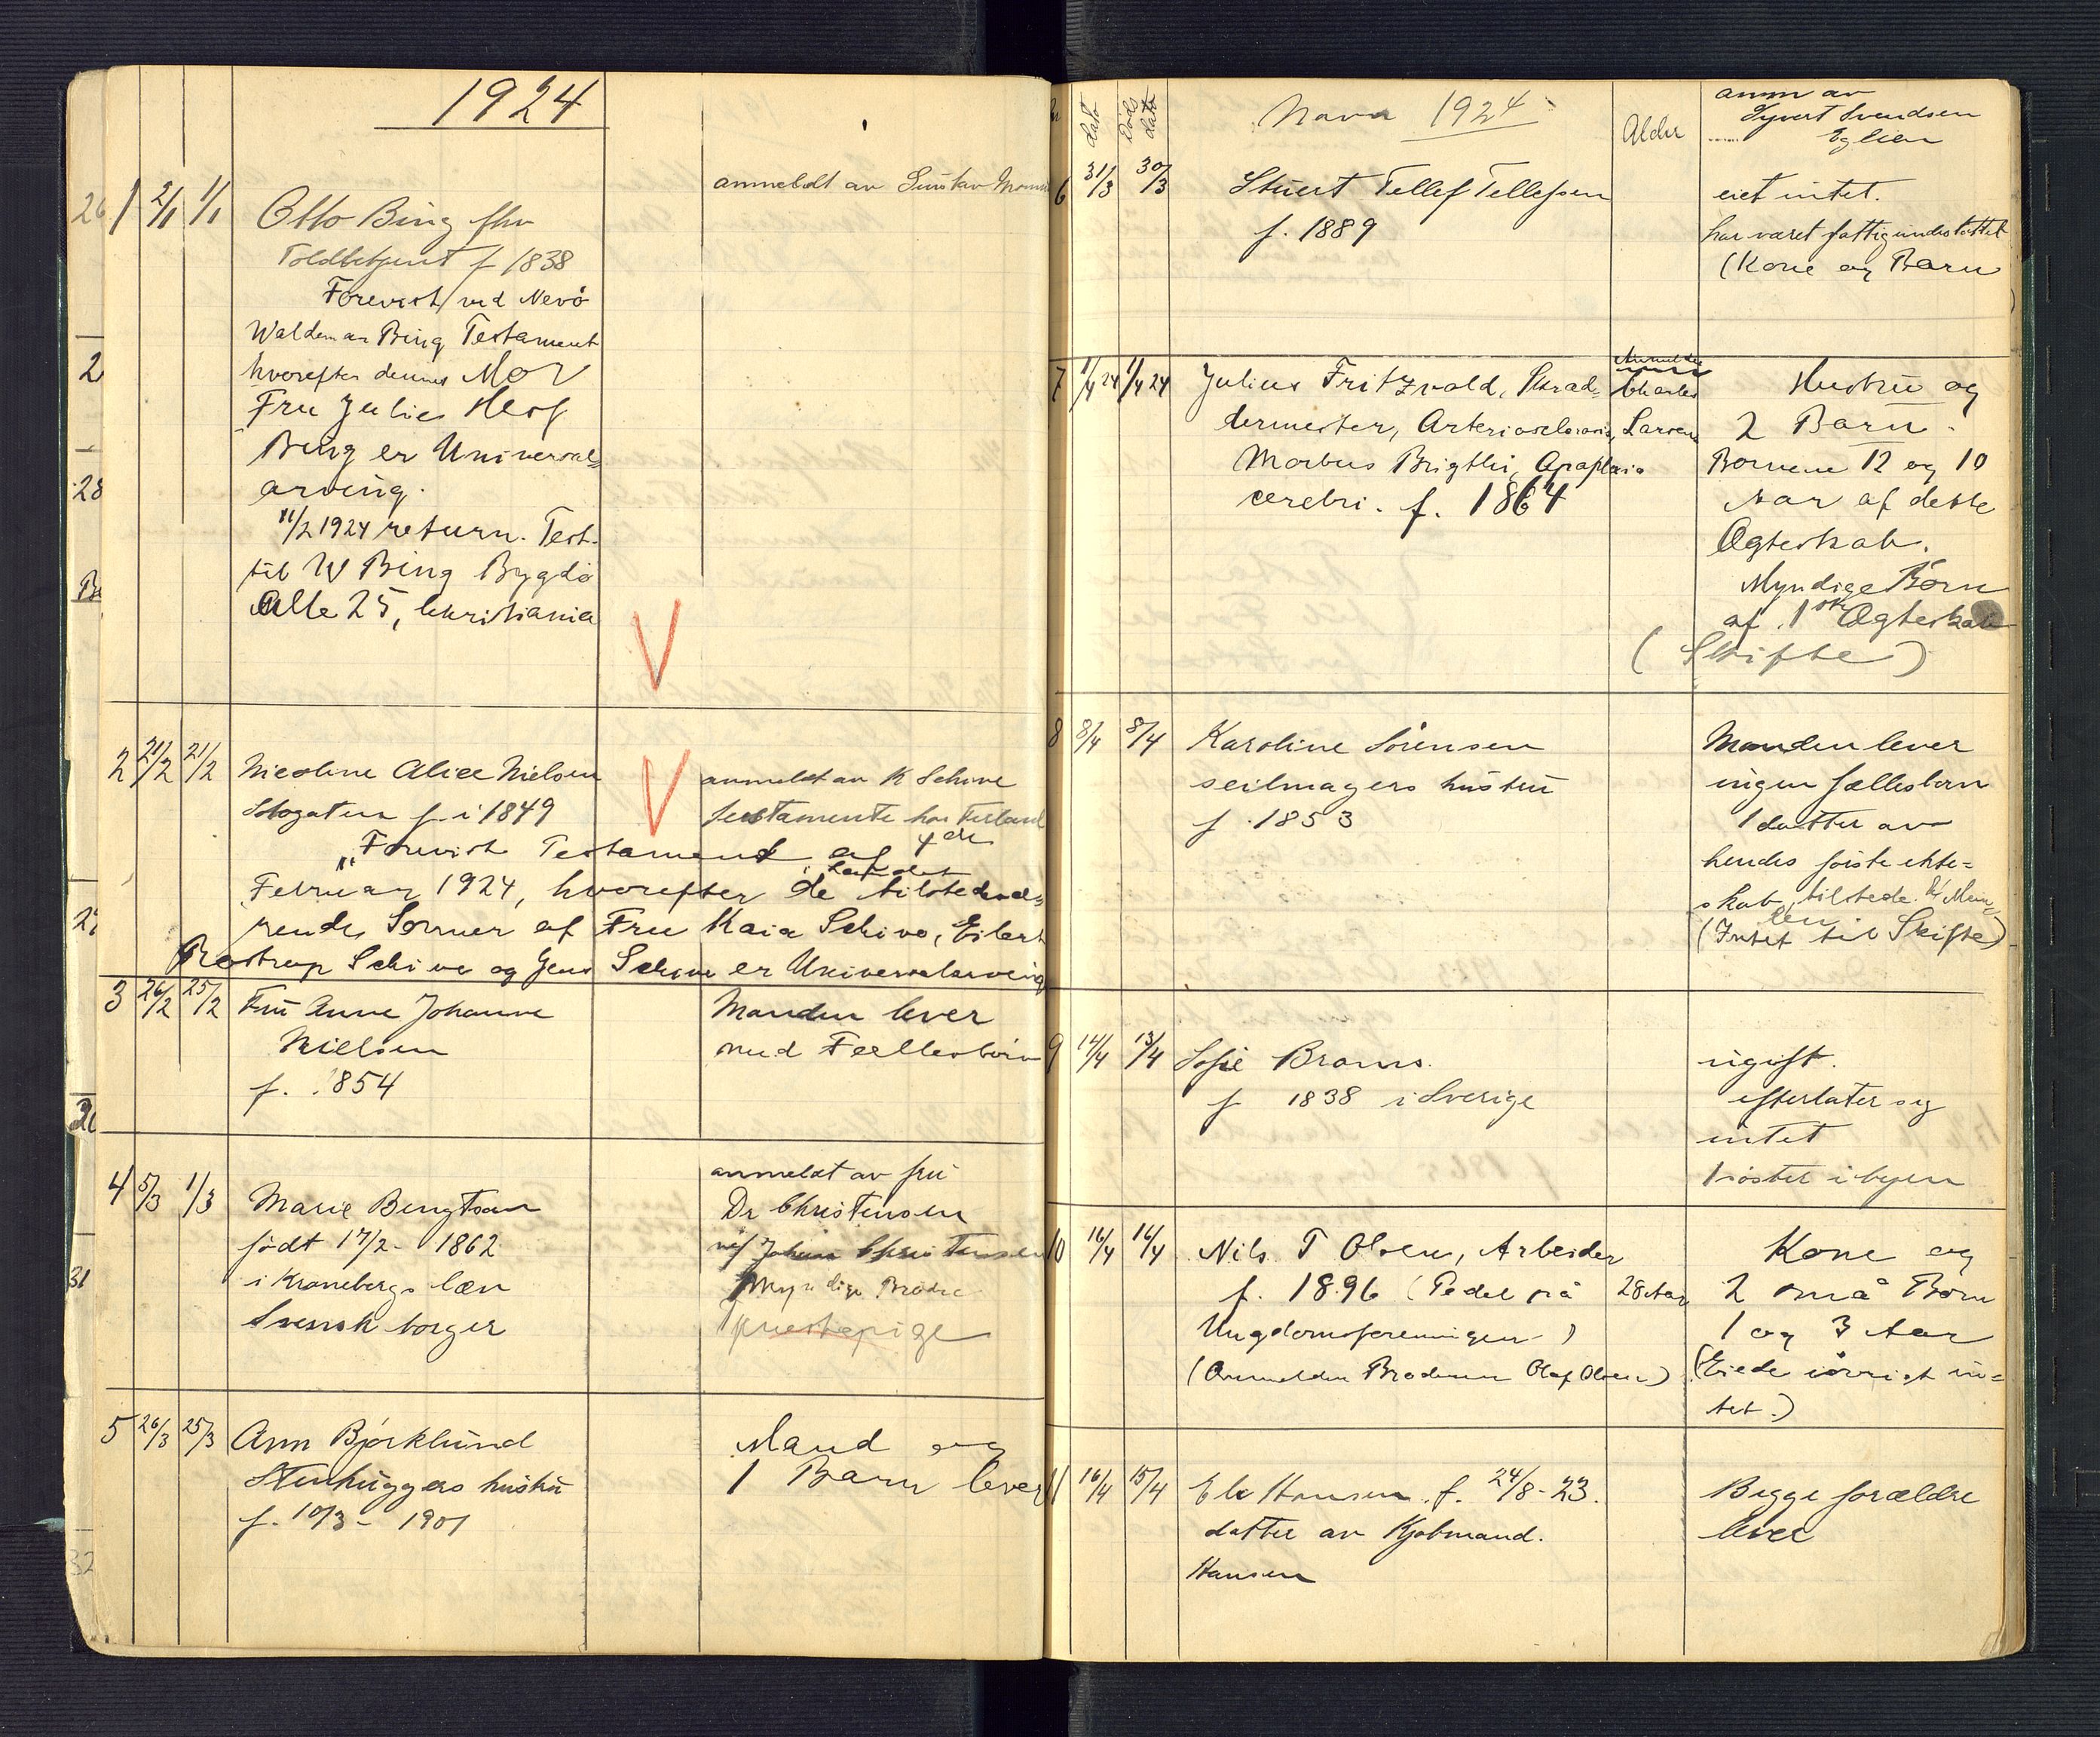 1924
26 1 2/1 1/1 Otto Bing fhv
anmeldt av Gustav
Toldbetjent f 1838
Forevist ved Nevø
Waldemar Bing Testament
hvorefter dennes Mor
Fru Julie
Bing er Universal-
arving.
11/2 1924 return. Test.
til W Bing Bygdø
Alle 25, Christiania
V
2 21/2 21/2 Nicoline Alice Nielsen
V anmeldt av K Schive
f. i 1849
testamente har
Forevist Testament af 4de
Februar 1924, hvorefter de i Landet tilstedevæ-
rende Sønner af Fru Kaia Schive, Eilert
Rostrup Schive og Jens Schive er Universalarving
3 26/2 25/2 Fru Anne Johanne
Manden lever
Nielsen
med Fællesbørn
f. 1854
4 5/3 1/3 Marie Bengtson
anmeldt av fru
Dr Christensen
født 17/2 - 1862
v/ Johan Christensen
i Kronebergs læn
Myndige Brødre
Svensk borger
tjenestepige
5 26/3 25/3 Ann Bjørklund
Mand og
Stenhuggers hustru
1 Barn lever
f. 10/3 - 1901
dato
Døds dato
Navn 1924
Alder
anm av
Syvert Svendsen
Eglien
6 31/3 30/3 Stuert Tellef Tellefsen
eiet intet.
f. 1889
har været fattigunderstøttet
(Kone og Barn
7 1/4 24 1/4 24 Julius Fritzvold, Skrad-
Anmelder
Charles
Hustru og
dermester, Arteriosclerosis,
Larsen
2 Barn.
Morbus Brigthi, Apoplexia
Børnene 12 og 10
cerebri. f. 1864
Aar af dette
Ægteskab.
Myndige Børn
af 1ste Ægteskab
(Skifte)
8 8/4 8/4 Karoline Sørensen
Manden lever
seilmagers hustru
ingen fællesbørn
f. 1853
1 datter av
hendes første ekte-
skab, tilstede.
(Intet til Skifte)
9 14/4 13/4 Sofie Broms.
ugift.
f 1838 i Sverige
efterlater seg
intet
1 søster i byen
10 16/4 16/4 Nils T Olsen, Arbeider
Kone og
f. 1896 (Pedel på
28 Aar
2 små Børn
Ungdomsforeningen)
1 og 3 Aar
(Anmelder Broderen Olaf Olsen)
(Eiede iøvrigt in-
tet.)
11 16/4 15/4 Else Hansen f. 24/8 - 23.
Begge forældre
datter av Kjøbmand.
lever
Hansen